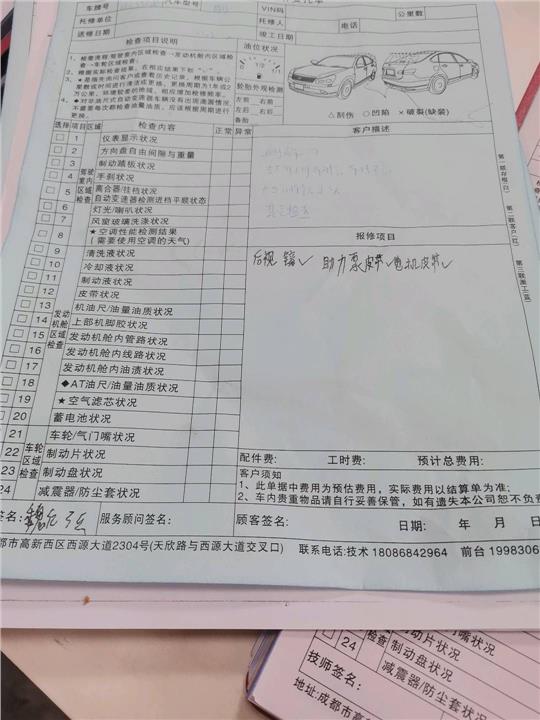 车牌号
汽车型号
VIN码
公里数
托修单位
托修人
电话
送修日期
竣工日期
检查项目说明
油位状况
轮胎外观检测
左前 右前
左后 右后
备胎
△刮伤 ○凹陷 ×破裂(缺装)
选择 项目 区域 检查内容 正常 异常
客户描述
驾驶室内区域检查
1 仪表显示状况
2 方向盘自由间隙与重量
3 制动踏板状况
4 手刹状况
5 离合器/挂档状况
自动变速器检测进档平顺状态
6 灯光/喇叭状况
7 风窗玻璃洗涤状况
8 ★空调性能检测结果
(需要使用空调的天气)
报修项目
后视镜✓ 助力泵皮带✓电机皮带✓
发动机舱区域检查
9 清洗液状况
10 冷却液状况
11 制动液状况
12 皮带状况
13 机油尺/油量油质状况
14 上部机脚胶状况
15 发动机舱内管路状况
16 发动机舱内线路状况
17 发动机舱内油渍状况
18 ◆AT油尺/油量油质状况
19 ★空气滤芯状况
20 蓄电池状况
车轮区域检查
21 车轮/气门嘴状况
22 制动片状况
23 制动盘状况
24 减震器/防尘套状况
配件费: 工时费: 预计总费用:
客户须知
1、此单据中费用为预估费用，实际费用以结算单为准;
2、车内贵重物品请自行妥善保管，如有遗失本公司恕不负
签名: 服务顾问签名: 顾客签名: 日期: 年 月 日
都市高新西区西源大道2304号(天欣路与西源大道交叉口) 联系电话:技术 18086842964 前台 1998306
第一联存根(白)
第二联客户(红)
第三联派工(蓝)
检查
制动片状况
制动盘状况
24 减震器/防尘套状况
技师签名:
地址:成都市高